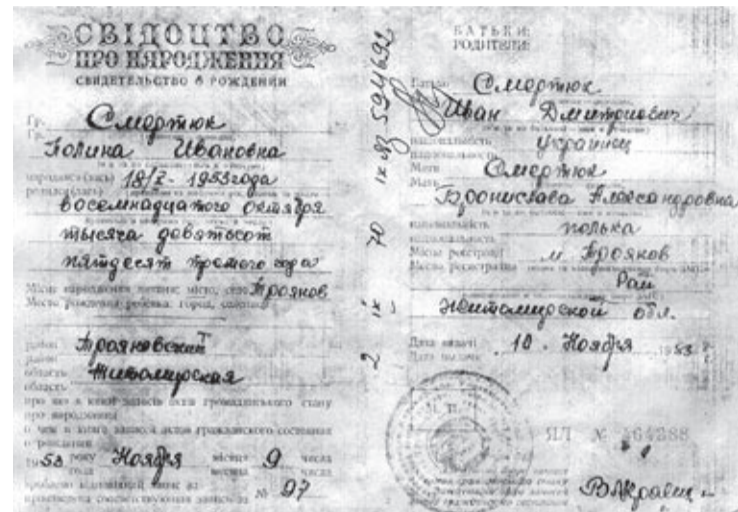 СВІДОЦТВО
ПРО НАРОДЖЕННЯ
СВИДЕТЕЛЬСТВО О РОЖДЕНИИ
Гр. Смортюк
Гр.
Голина Ивановна
народився(лась) 18/X - 1953 года
родился(лась)
восемнадцатого октября
тысяча девятьсот
пятдесят третого года
Місце народження дитини: місто, село Троянов
Место рождения ребенка: город, селение
район Трояновский
район
область Житомирская
область
про що в книзі записів актів громадянського стану
про народження
о чем в книге записи актов гражданского состояния
о рождении
1953 року Ноября місяця 9 числа
года месяца числа
зроблено відповідний запис за
произведена соответствующая запись за № 97
IX ЯЗ 594692
2 IX 70
БАТЬКИ:
РОДИТЕЛИ:
Батько Смортюк
Иван Дмитриевич
національність украинец
национальность
Мати Смортюк
Мать
Бронислава Александровна
національність полька
национальность
Місце реєстрації м. Троянов
Место регистрации
Рай
Житомирской обл.
Дата видачі 10. Ноября 1953 р.
Дата выдачи г.
М. П.
ЯЛ № 464288